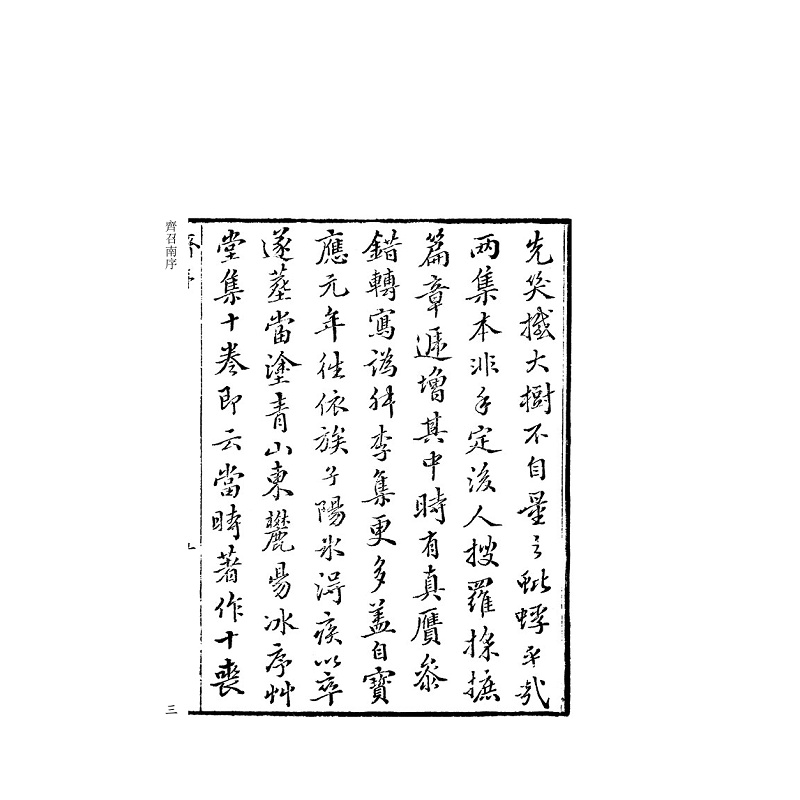 先笑撼大樹不自量之蚍蜉乎哉
两集本非手定後人搜羅採摭
篇章遞增其中時有真贋叅
錯轉寫譌舛李集更多盖自寶
應元年往依族子陽氷淂疾以卒
遂塟當塗青山東麓陽冰序艸
堂集十卷即云當時著作十喪
齊召南序
三